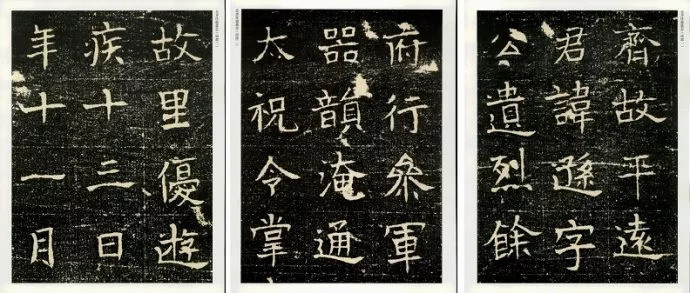 齊故平遠
君諱遜字
公遺烈餘
府行參軍
器韻淹通
太祝令掌
故里優遊
疾十三日
年十一月